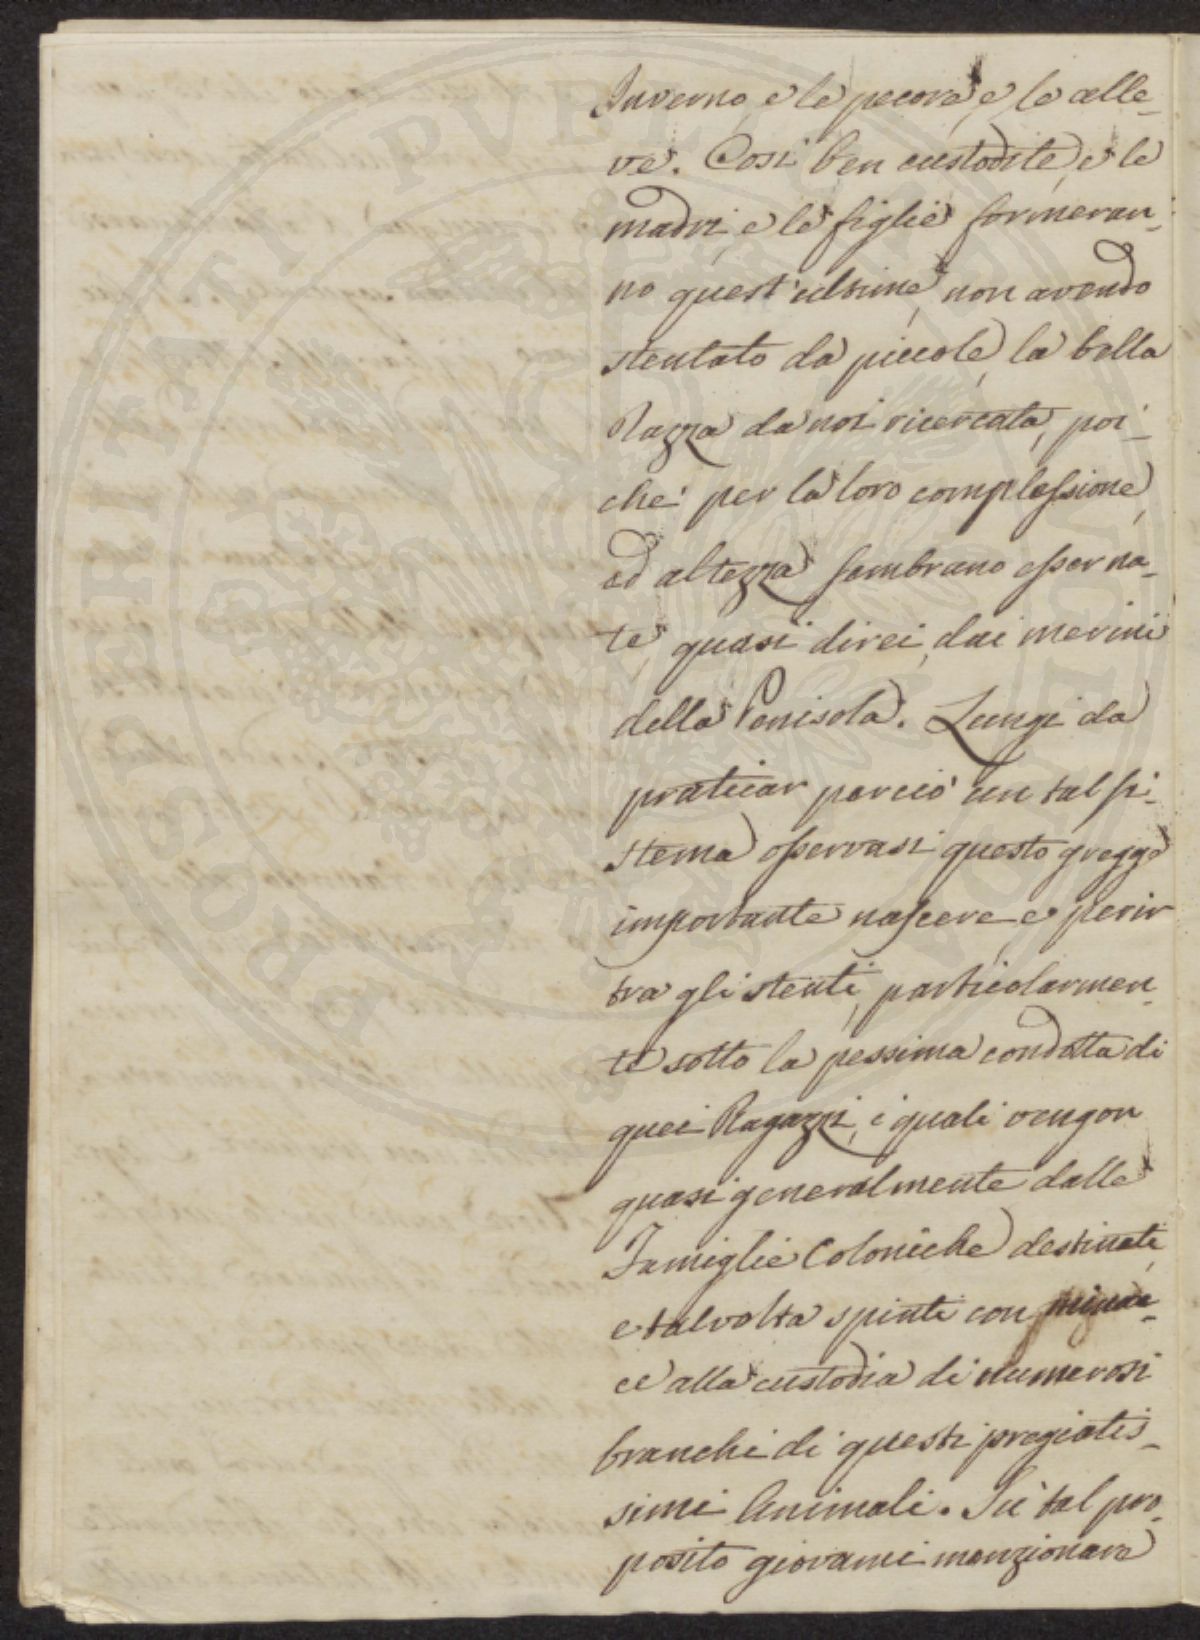 Inverno, e le pecore, e le alle-
ve. Così ben custodite, e le
madri, e le figlie formeran-
no quest'ultime, non avendo
stentato da piccole, la bella
Razza da noi ricercata, poi-
chè per la loro complessione,
ed altezza sembrano esser na-
te, quasi direi, dai merini
della Penisola. Lungi da
praticar perciò un tal si-
stema osservasi questo gregge
importante nascere, e perir
tra gli stenti, particolarmen-
te sotto la pessima condotta di
quei Ragazzi, i quali vengon
quasi generalmente dalle
Famiglie Coloniche destinati,
e talvolta spinti con minac-
ce alla custodia di numerosi
branchi di questi pregiatis-
simi Animali. Su tal pro-
posito giovami menzionare
PROSPERITATI PUBLICAE AUGENDAE